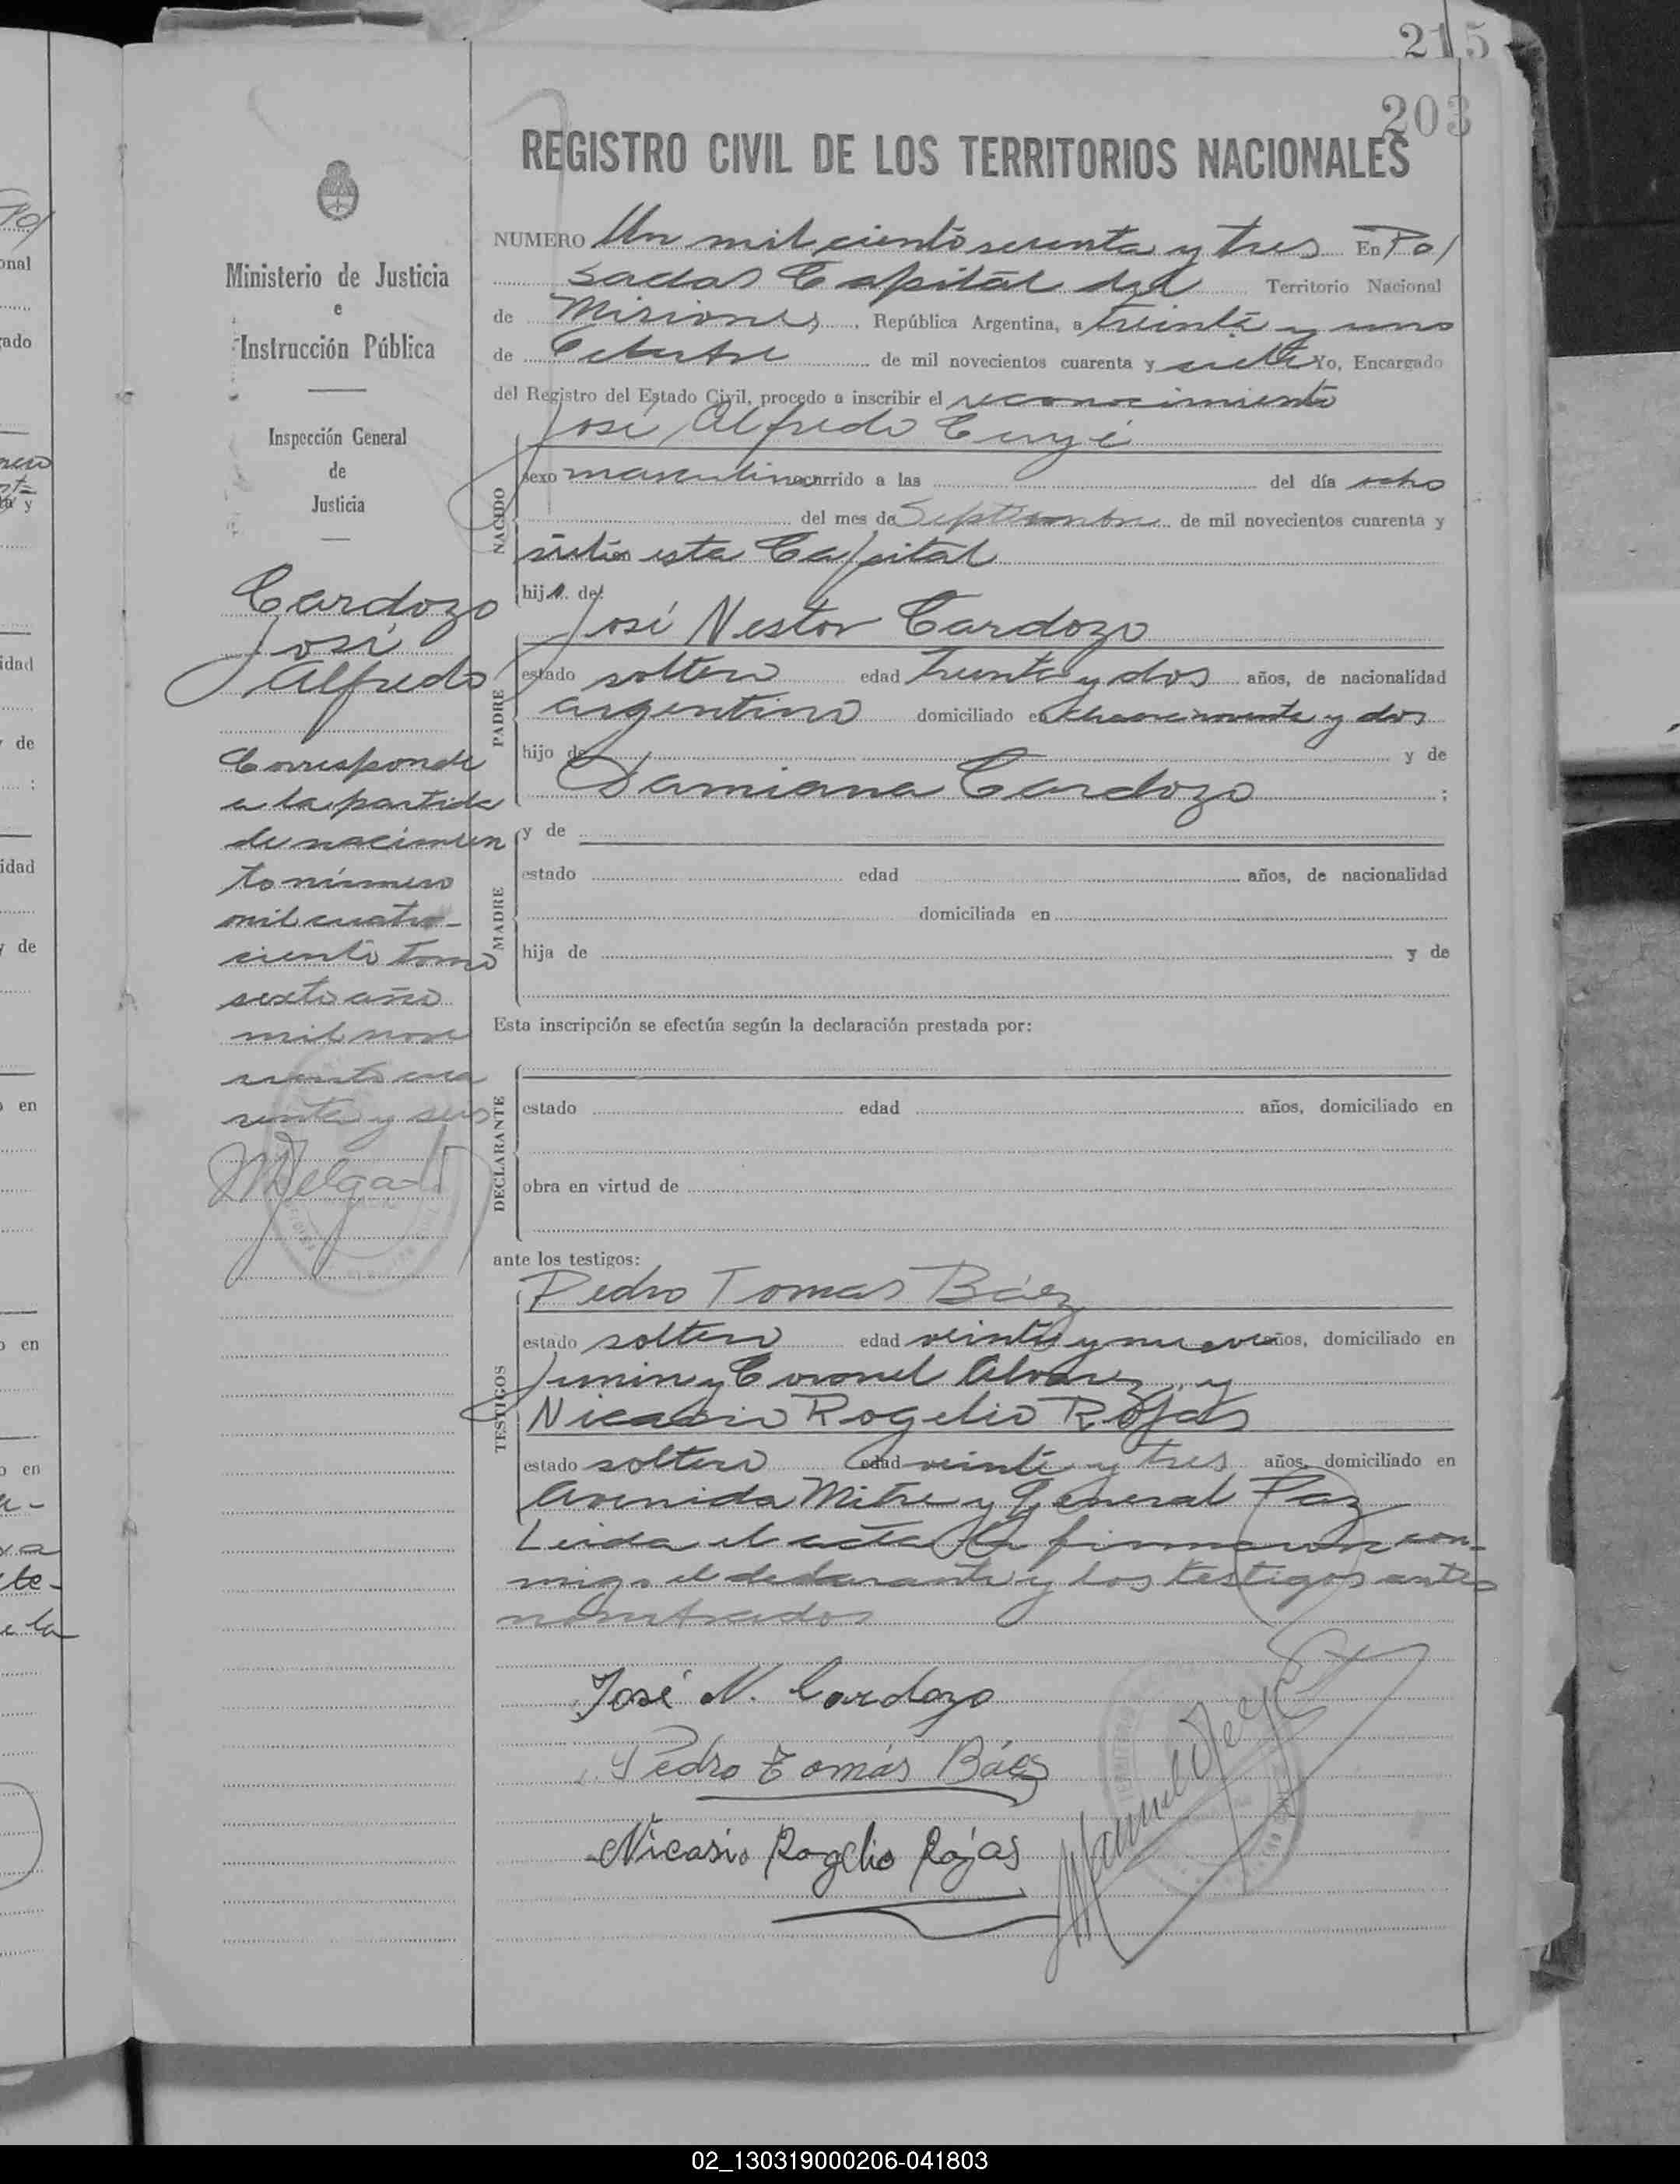 215
203
REGISTRO CIVIL DE LOS TERRITORIOS NACIONALES
Ministerio de Justicia
e
Instrucción Pública
Inspección General
de
Justicia
Cardozo
José
Alfredo
Corresponde
a la partida
de nacimien
to número
mil cuatro-
ciento tomo
sexto año
mil nove
ciento cua
renta y seis
NUMERO Un mil ciento setenta y tres En Po/
sadas Capital del Territorio Nacional
de Misiones, República Argentina, a treinta y uno
de Octubre de mil novecientos cuarenta y siete Yo, Encargado
del Registro del Estado Civil, procedo a inscribir el reconocimiento
NACIDO
José Alfredo
sexo masculino ocurrido a las del día ocho
del mes de Septiembre de mil novecientos cuarenta y
esta Capital
hijo de:
PADRE
José Nestor Cardozo
estado soltero edad treinta y dos años, de nacionalidad
argentino domiciliado en y dos
hijo de y de
Damiana Cardozo ;
MADRE
y de
estado edad años, de nacionalidad
domiciliada en
hija de y de
Esta inscripción se efectúa según la declaración prestada por:
DECLARANTE
estado edad años, domiciliado en
obra en virtud de
ante los testigos:
TESTIGOS
Pedro Tomas Báez
estado soltero edad veinte y nueve años, domiciliado en
Junin y Coronel Alvarez y
Nicasio Rogelio Rojas
estado soltero edad veinte y tres años, domiciliado en
Avenida Mitre y General Paz
Leida el acta la firmaron con-
migo el declarante y los testigos antes
nombrados
José N. Cardozo
Pedro Tomás Báez
Nicasio Rogelio Rojas
02_130319000206-041803